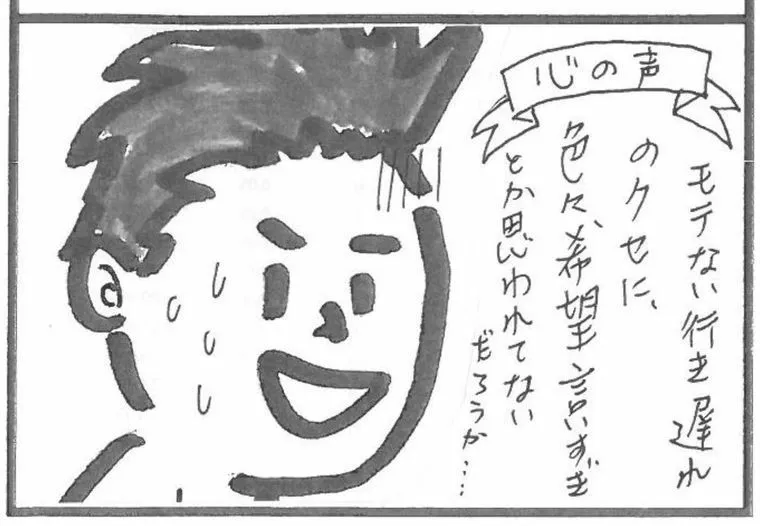 心の声
モテない行き遅れ
のクセに、
色々、希望言いすぎ
とか思われてない
だろうか…